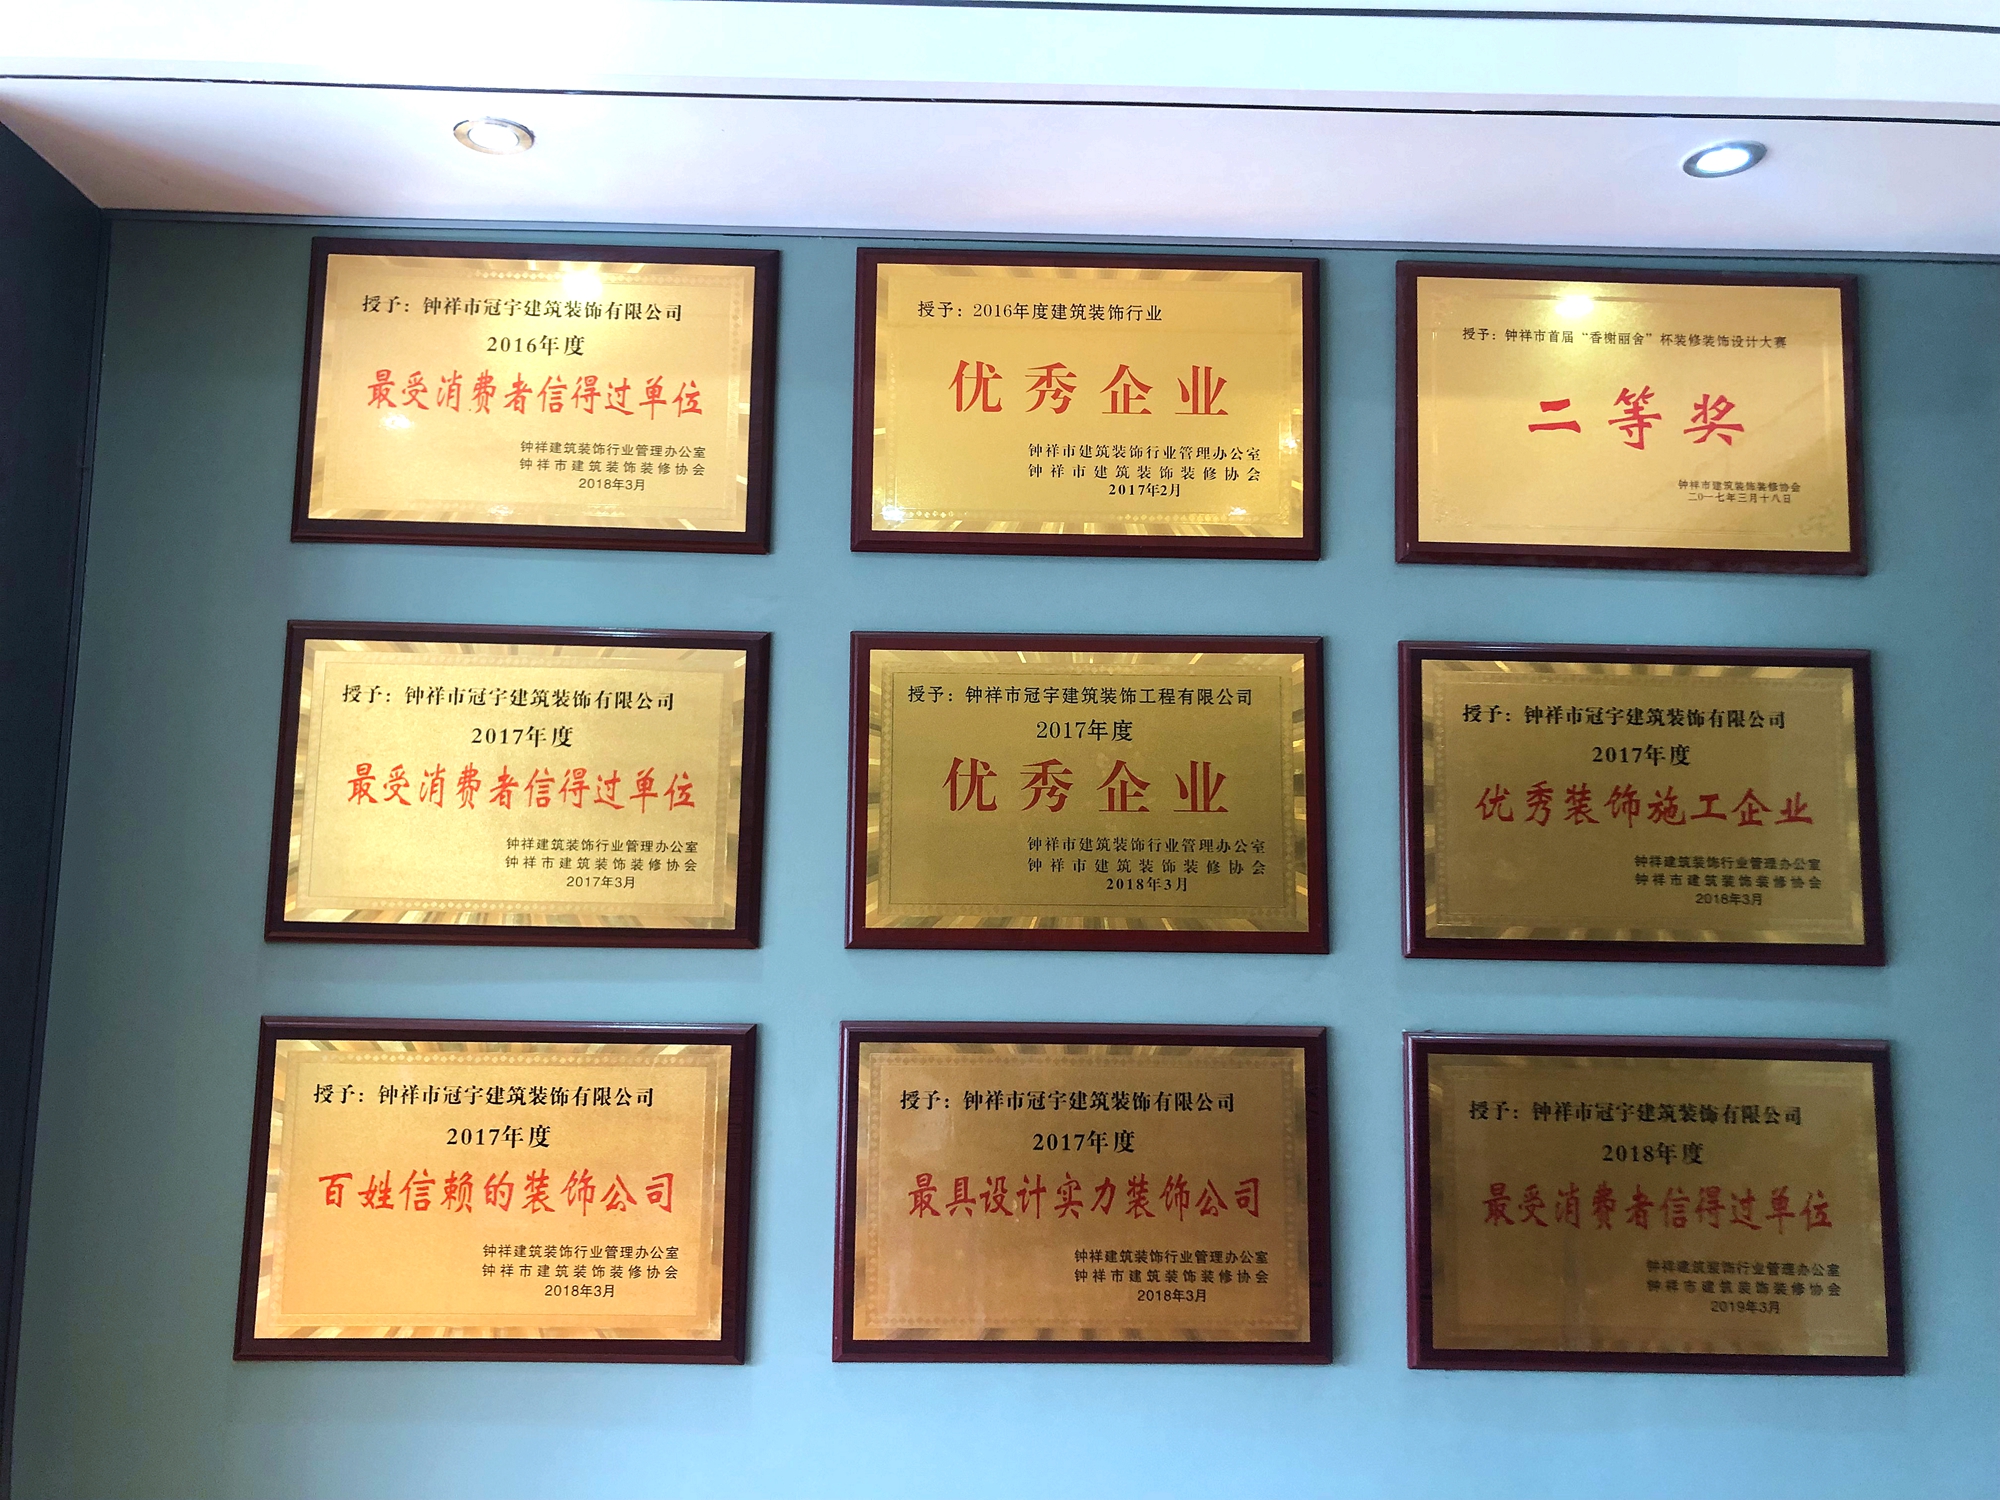 授予：钟祥市冠宇建筑装饰有限公司
2016年度
最受消费者信得过单位
钟祥建筑装饰行业管理办公室
钟祥市建筑装饰装修协会
2018年3月
授予：2016年度建筑装饰行业
优秀企业
钟祥市建筑装饰行业管理办公室
钟祥市建筑装饰装修协会
2017年2月
授予：钟祥市首届“香榭丽舍”杯装修装饰设计大赛
二等奖
钟祥市建筑装饰装修协会
二0一七年三月十八日
授予：钟祥市冠宇建筑装饰有限公司
2017年度
最受消费者信得过单位
钟祥建筑装饰行业管理办公室
钟祥市建筑装饰装修协会
2017年3月
授予：钟祥市冠宇建筑装饰工程有限公司
2017年度
优秀企业
钟祥市建筑装饰行业管理办公室
钟祥市建筑装饰装修协会
2018年3月
授予：钟祥市冠宇建筑装饰有限公司
2017年度
优秀装饰施工企业
钟祥建筑装饰行业管理办公室
钟祥市建筑装饰装修协会
2018年3月
授予：钟祥市冠宇建筑装饰有限公司
2017年度
百姓信赖的装饰公司
钟祥建筑装饰行业管理办公室
钟祥市建筑装饰装修协会
2018年3月
授予：钟祥市冠宇建筑装饰有限公司
2017年度
最具设计实力装饰公司
钟祥建筑装饰行业管理办公室
钟祥市建筑装饰装修协会
2018年3月
授予：钟祥市冠宇建筑装饰有限公司
2018年度
最受消费者信得过单位
钟祥建筑装饰行业管理办公室
钟祥市建筑装饰装修协会
2019年3月